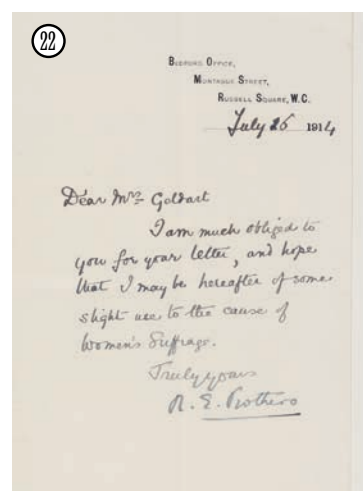 22
BEDFORD OFFICE,
MONTAGUE STREET,
RUSSELL SQUARE, W.C.
July 26 1914
Dear Mrs Goldart
I am much obliged to
you for your letter, and hope
that I may be hereafter of some
slight use to the cause of
Women's Suffrage.
Truly yours
R. E. Prothero